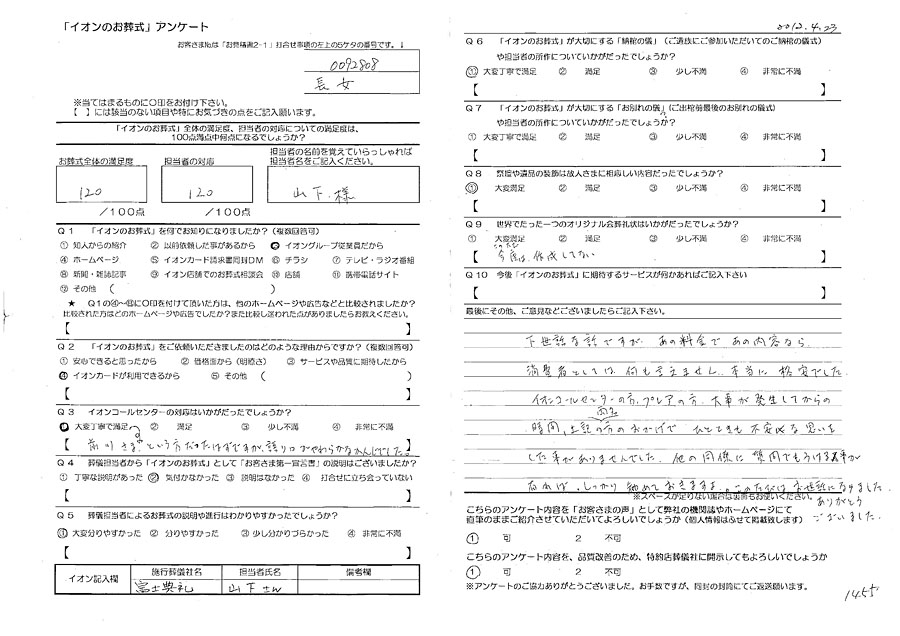 「イオンのお葬式」アンケート
お客さま№は「お見積書2-1」打合せ事項の左上の5ケタの番号です。↓
0092808
長女
※当てはまるものに○印をお付け下さい。
【　】には該当のない項目や特にお気づきの点をご記入願います。
「イオンのお葬式」全体の満足度、担当者の対応についての満足度は、
100点満点中何点になるでしょうか?
お葬式全体の満足度
担当者の対応
担当者の名前を覚えていらっしゃれば
担当者名をご記入ください。
120
120
山下様
/100点
/100点
Q1 「イオンのお葬式」を何でお知りになりましたか?(複数回答可)
① 知人からの紹介 ② 以前依頼した事があるから ③ イオングループ従業員だから
④ ホームページ ⑤ イオンカード請求書同封DM ⑥ チラシ ⑦ テレビ・ラジオ番組
⑧ 新聞・雑誌記事 ⑨ イオン店舗でのお葬式相談会 ⑩ 店舗 ⑪ 携帯電話サイト
⑫ その他 ( )
★ Q1の④~⑪に○印を付けて頂いた方は、他のホームページや広告などと比較されましたか?
比較された方はどのホームページや広告でしたか?また比較し迷われた点がありましたらお教えください。
【 】
Q2 「イオンのお葬式」をご依頼いただきましたのはどのような理由からですか?(複数回答可)
① 安心できると思ったから ② 価格面から(明瞭さ) ③ サービスや品質に期待したから
④ イオンカードが利用できるから ⑤ その他 ( )
【 】
Q3 イオンコールセンターの対応はいかがだったでしょうか?
① 大変丁寧で満足 ② 満足 ③ 少し不満 ④ 非常に不満
【 前川さま?という方だったはずですが、語り口がやわらかなかんじでした。 】
Q4 葬儀担当者から「イオンのお葬式」として「お客さま第一宣言書」の説明はございましたか?
① 丁寧な説明があった ② 気付かなかった ③ 説明はなかった ④ 打合せに立ち会っていない
【 】
Q5 葬儀担当者によるお葬式の説明や進行はわかりやすかったでしょうか?
① 大変分りやすかった ② 分りやすかった ③ 少し分かりづらかった ④ 非常に不満
【 】
イオン記入欄
施行葬儀社名
担当者氏名
備考欄
富士典礼
山下さん
2012.4.23
Q6 「イオンのお葬式」が大切にする「納棺の儀」(ご遺族にご参加いただいてのご納棺の儀式)
や担当者の所作についていかがだったでしょうか?
① 大変丁寧で満足 ② 満足 ③ 少し不満 ④ 非常に不満
【 】
Q7 「イオンのお葬式」が大切する「お別れの儀」(ご出棺前最後のお別れの儀式)
や担当者の所作についていかがだったでしょうか?
① 大変丁寧で満足 ② 満足 ③ 少し不満 ④ 非常に不満
【 】
Q8 祭壇や遺品の装飾は故人さまに相応しい内容だったでしょうか?
① 大変満足 ② 満足 ③ 少し不満 ④ 非常に不満
【 】
Q9 世界でたった一つのオリジナル会葬礼状はいかがだったでしょうか?
① 大変満足 ② 満足 ③ 少し不満 ④ 非常に不満
【 今度は作成してない 】
Q10 今後「イオンのお葬式」に期待するサービスが何かあればご記入下さい
【 】
最後にその他、ご意見などございましたらご記入下さい。
下世話な話ですが、あの料金であの内容なら、
消費者としては、何も言えません。本当に格安でした。
イオンコールセンターの方、プレアの方、大事が発生してからの
時間、上記の両名の方のおかげで ひとときも不安な思いを
した事がありませんでした。他の関係に質問でもうける事が
あれば、しっかり勧めておきますよ。このたびはお世話になりました。
ありがとう
ございました。
※スペースが足りない場合は裏面もお使いください。
こちらのアンケート内容を「お客さまの声」として弊社の機関誌やホームページにて
直筆のままご紹介させていただいてよろしいでしょうか(個人情報はふせて掲載致します)
① 可 2 不可
こちらのアンケート内容を、品質改善のため、特約店葬儀社に開示してもよろしいでしょうか
① 可 2 不可
※アンケートのご協力ありがとうございました。お手数ですが、同封の封筒にてご返送願います。
1455